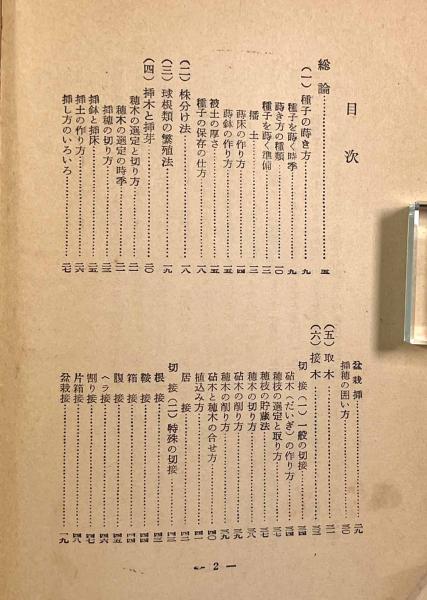 目次
総論…………五
(一) 種子の蒔き方…………九
種子を蒔く時季…………九
蒔き方の種類…………一〇
種子を蒔く準備…………一三
播土…………一三
蒔床の作り方…………一四
蒔鉢の作り方…………一五
被土の厚さ…………一五
種子の保存の仕方…………一八
(二) 株分け法…………一八
(三) 球根類の繁殖法…………一九
(四) 挿木と挿芽…………二〇
穂木の選定と切り方…………二一
穂木の選定の時季…………二一
挿穂の切り方…………二二
挿鉢と挿床…………二五
挿土の作り方…………二六
挿し方のいろいろ…………二七
盆栽挿…………二九
挿穂の囲い方…………三〇
(五) 取木…………三一
(六) 接木…………三三
切接(一) 一般の切接…………三四
砧木(だいぎ)の作り方…………三四
穂枝の選定と取り方…………三七
穂枝の貯蔵法…………三七
穂木の切り方…………三八
砧木の削り方…………三九
穂木の削り方…………三九
砧木と穂木の合せ方…………四〇
植込み方…………四一
居接…………四二
切接(二) 特殊の切接…………四三
根接…………四三
鞍接…………四四
箱接…………四四
腹接…………四五
ヘラ接…………四六
割り接…………四七
片箱接…………四八
盆栽接…………四九
— 2 —